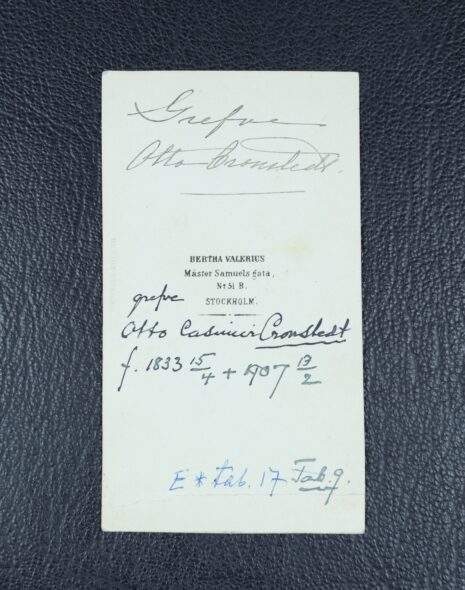 Grefve
Otto Cronstedt.
BERTHA VALERIUS
Mäster Samuels gata,
No 51 B.
STOCKHOLM.
grefve
Otto Casimir Cronstedt
f. 1833 15/4 + 1907 13/2
E * tab. 17 Tab. 9.